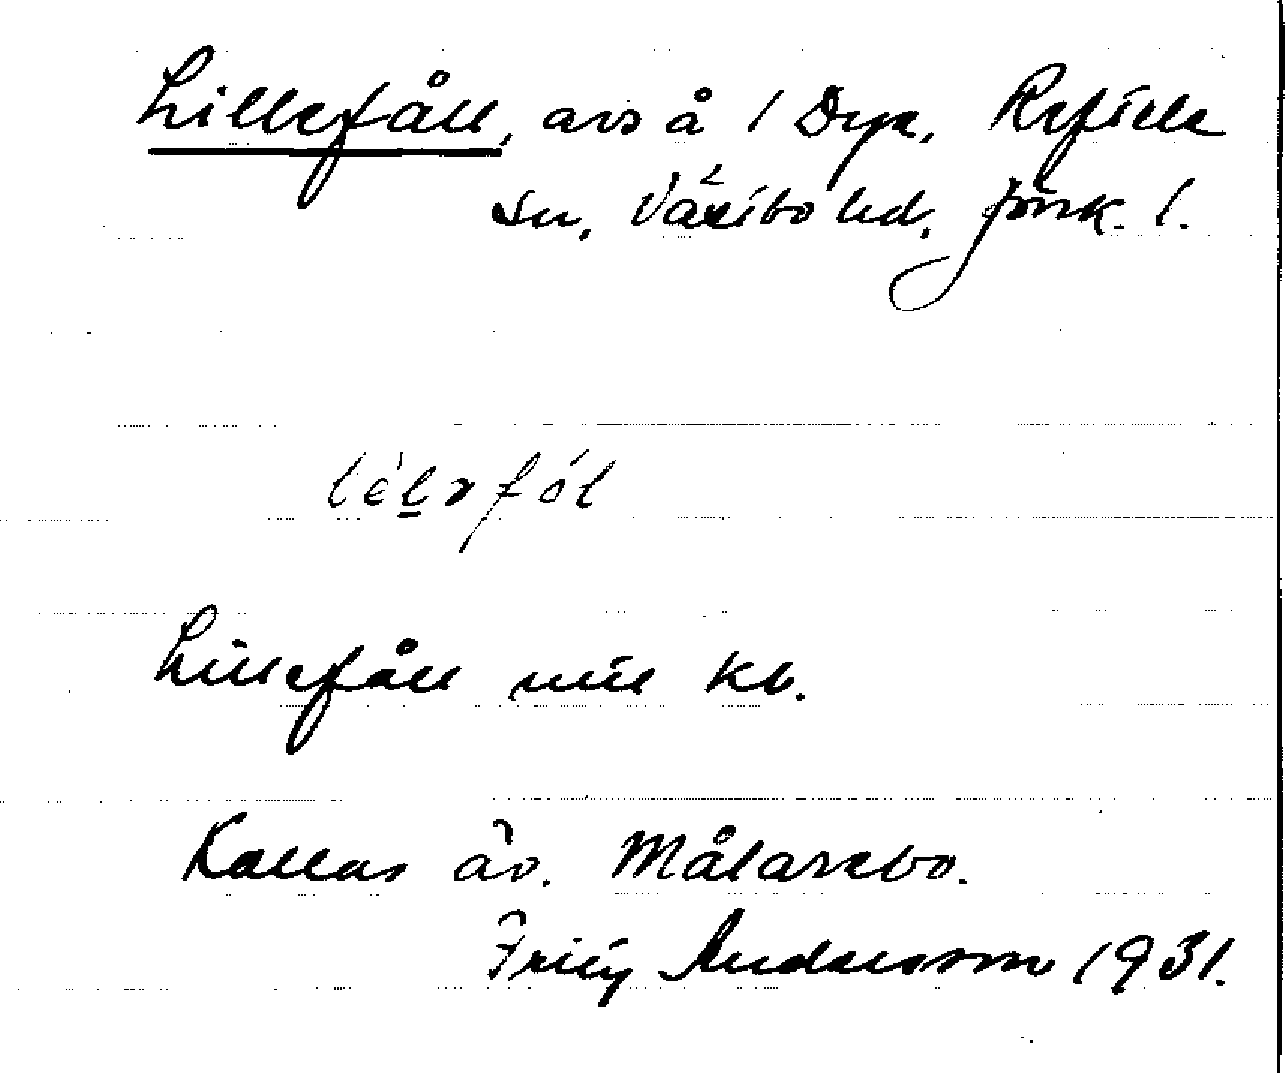 Lillefåll, avs å 1 Dya, Reftele
sn, Västbo hd, Jönk. l.
Lillefåll mtl Kb.
Kallas äv. Målarebo.
Fritz Andersson 1931.